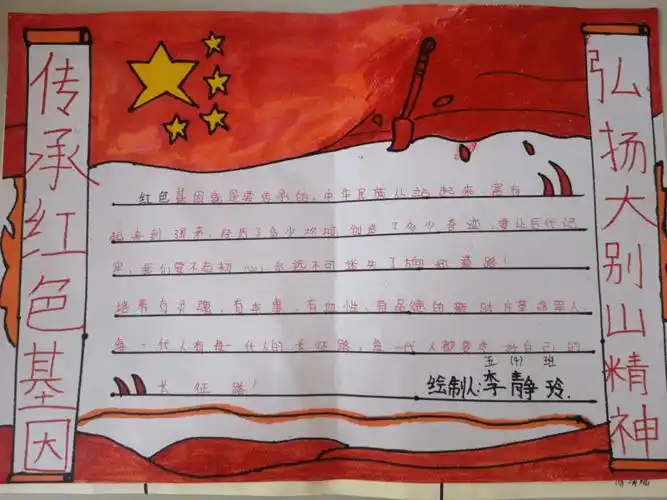 传承红色基因
弘扬大别山精神
红色基因就是要传承的，中华民族从站起来，富有
起来到强起来，经历了多少坎坷，创造了多少奇迹，要让后代记
牢，我们要不忘初心，永远不可迷失了方向和道路！
培养有灵魂，有本事，有血性，有品德的新时代革命军人
每一代人有每一代人的长征路，每一代人都要走好自己的
长征路！
五(4)班
绘制人：李静玲.